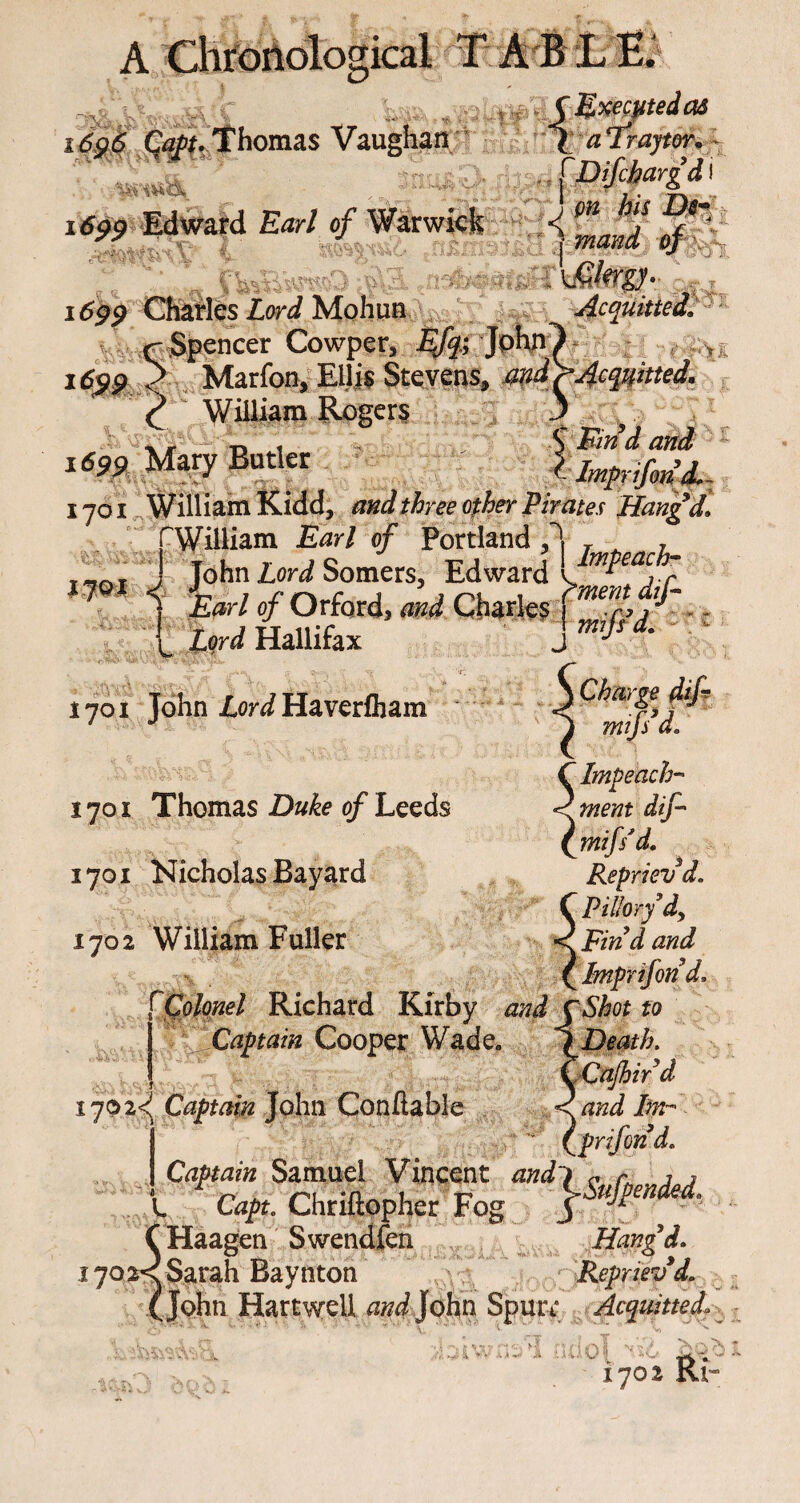 A Chronological TABLE.
1696 Capt. Thomas Vaughan { Executed as
a Traytor.
1699 Edward Earl of Warwick { Discharg'd
on his De-
mand of
Clergy.
1699 Charles Lord Mohun Acquitted.
1699 { Spencer Cowper, Esq; John
Marson, Ellis Stevens, and
William Rogers } Acquitted.
1699 Mary Butler { Fin'd and
Imprison'd.
1701 William Kidd, and three other Pirates Hang'd.
1701 { William Earl of Portland,
John Lord Somers, Edward
Earl of Orford, and Charles
Lord Hallifax } Impeach-
ment dis-
miss'd.
1701 John Lord Haversham { Charge dis-
miss'd.
1701 Thomas Duke of Leeds { Impeach-
ment dis-
miss'd.
1701 Nicholas Bayard Repriev'd.
1702 William Fuller { Pillory'd,
Fin'd and
Imprison'd.
1702 { Colonel Richard Kirby and
Captain Cooper Wade. { Shot to
Death.
Captain John Constable { Cashir'd
and Im-
prison'd.
Captain Samuel Vincent and
Capt. Christopher Fog } Suspended.
1702 { Haagen Swendsen Hang'd.
Sarah Baynton Repriev'd.
John Hartwell and John Spurr Acquitted.
1702 Ri-